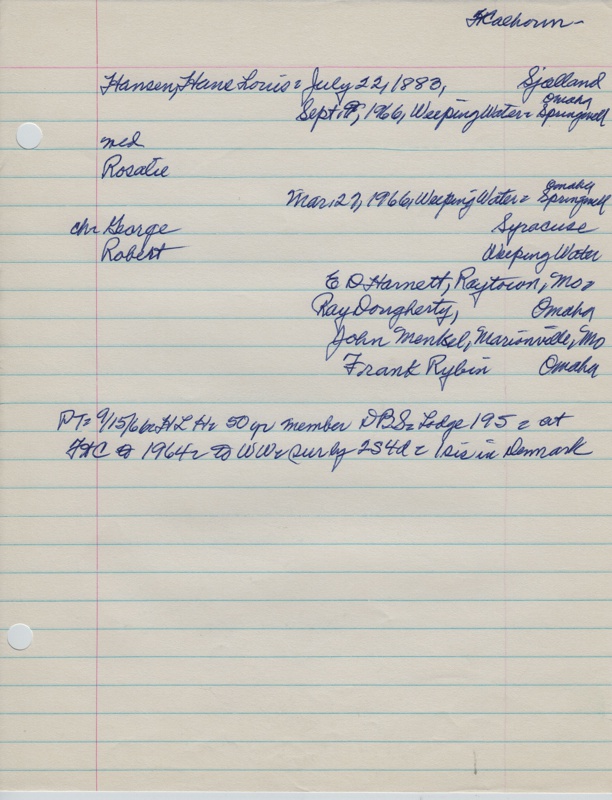 FtCalhoun-
Hansen, Hans Louis- July 22, 1883, Sjælland
Omaha
Sept. 9, 1966, Weeping Water- Springwell
md
Rosalie
Omaha
Mar. 27, 1966, Weeping Water- Springwell
ch- George Syracuse
Robert Weeping Water
E D Harnett, Raytown, Mo-
Ray Dougherty, Omaha
John Menkel, Marionville, Mo
Frank Rybin Omaha
PT- 9/15/66- H L H- 50 yr member DBS- Lodge 195- at
FtC to 1964- to WW- sur by 2S4d- 1 sis in Denmark